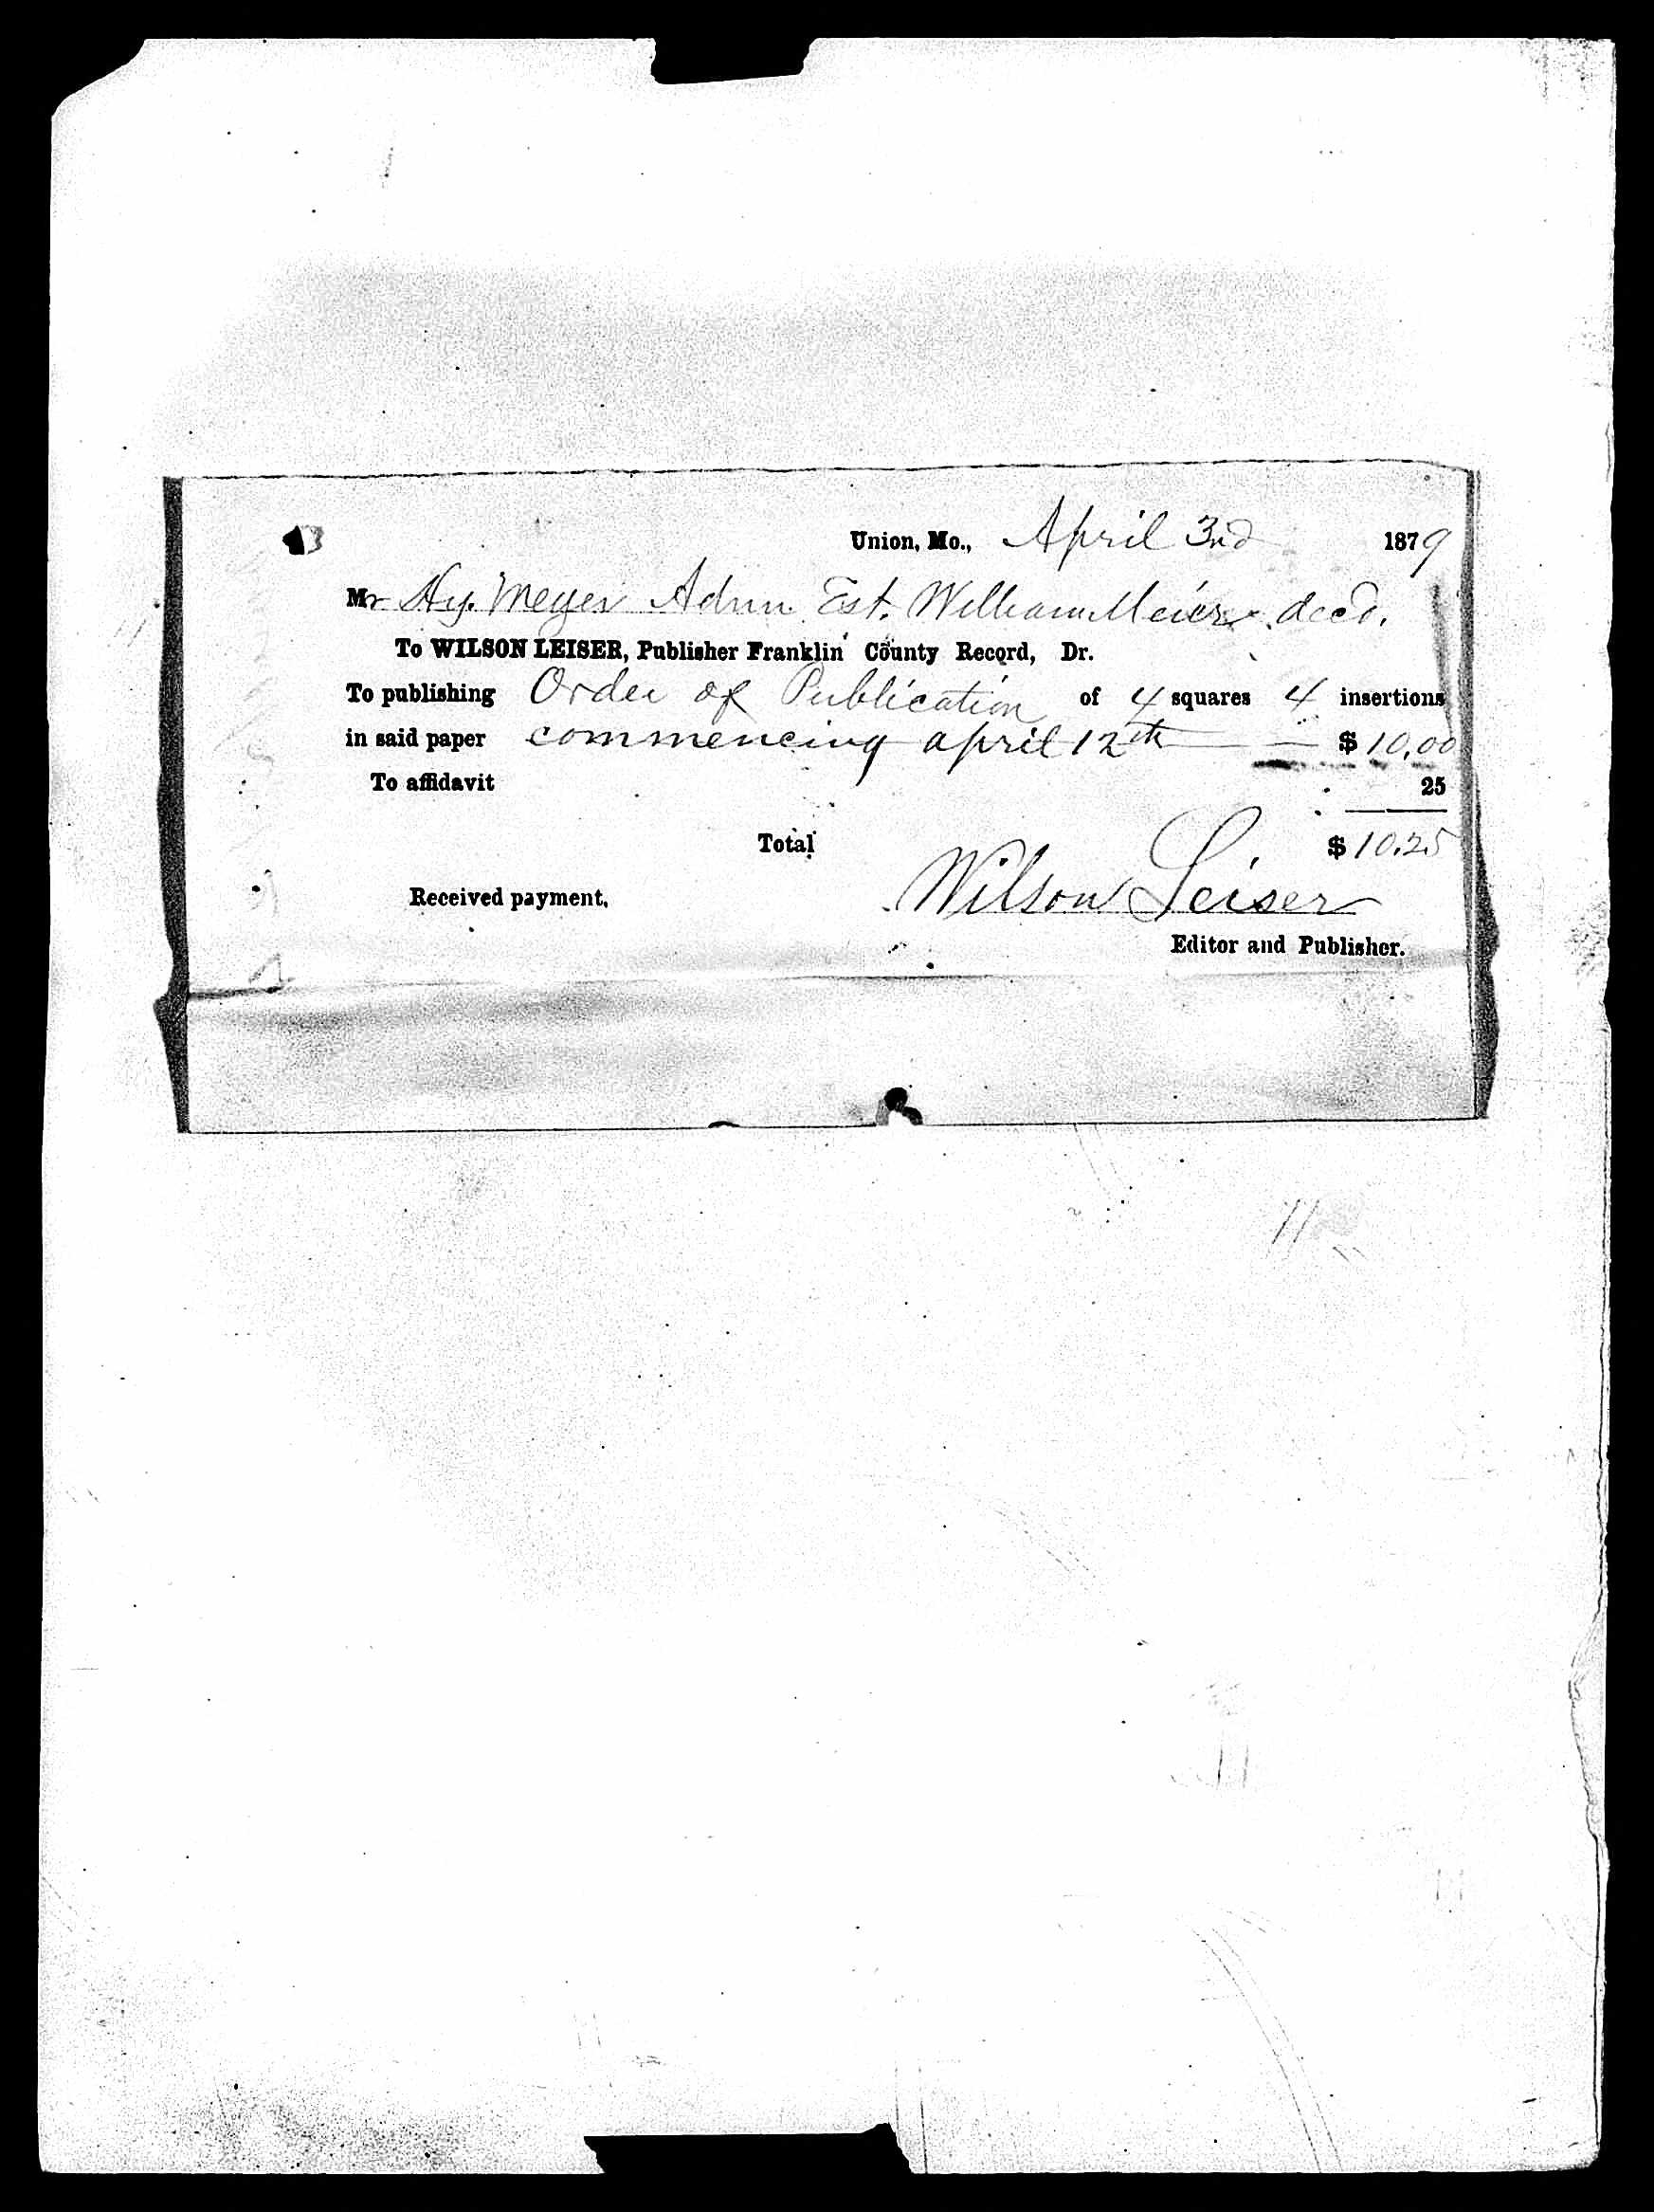 Union, Mo., April 3rd 1879
Mr Hy. Meyer Admr. Est. William Meier decd.
To WILSON LEISER, Publisher Franklin County Record, Dr.
To publishing Order of Publication of 4 squares 4 insertions
in said paper commencing april 12th $ 10.00
To affidavit 25
Total $ 10.25
Received payment, Wilson Leiser
Editor and Publisher.